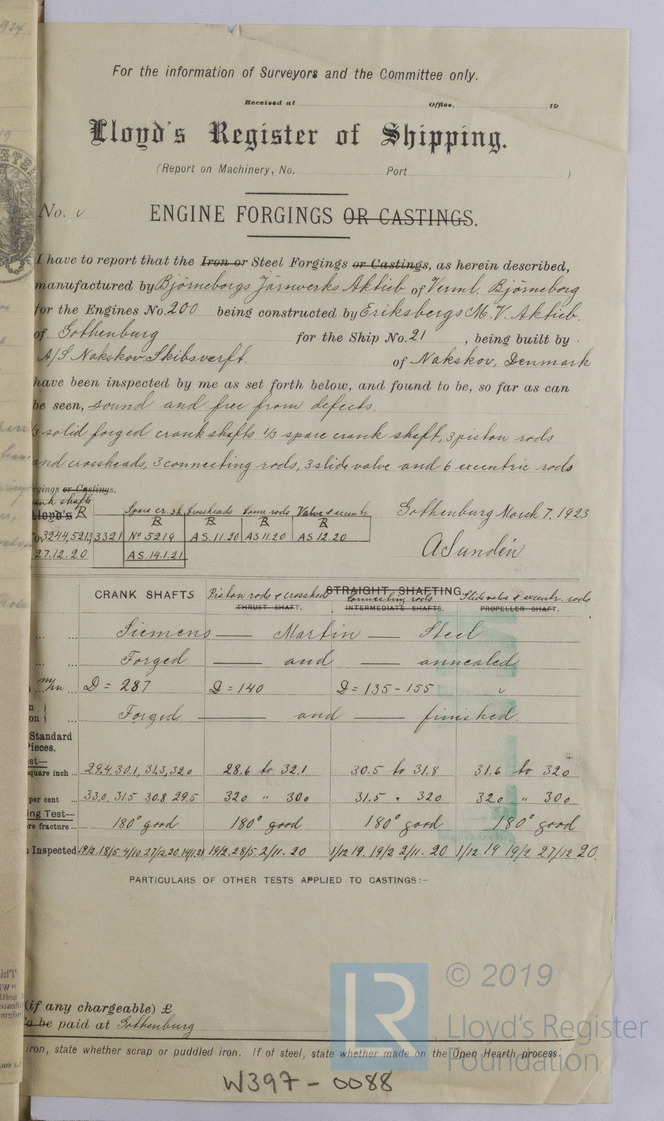 For the information of Surveyors and the Committee only.
Received at Office. 19
Lloyd's Register of Shipping.
(Report on Machinery, No. Port )
No. ENGINE FORGINGS OR CASTINGS.
I have to report that the Iron or Steel Forgings or Castings, as herein described,
manufactured by Björneborgs Järnwerks Aktieb of Verml. Björneborg
for the Engines No. 200 being constructed by Eriksbergs M. V. Aktieb.
of Gothenburg for the Ship No. 21, being built by
A/S Nakskov Skibsverft of Nakskov, Denmark
have been inspected by me as set forth below, and found to be, so far as can
be seen, sound and free from defects.
3 solid forged crank shafts 1/3 spare crank shaft, 3 piston rods
and crossheads, 3 connecting rods, 3 slide valve and 6 excentric rods
rgings or Castings.
ank shafts Spare cr. sh. Conn rods Valve & excentr
Lloyd's R R R R R
3244, 5213 3321 No 5219 A.S. 11.20 A.S. 11.20 A.S. 12.20
27.12.20 A.S. 14.1.21
Gothenburg March 7, 1923
A Sundén
STRAIGHT SHAFTING
CRANK SHAFTS Piston rods & crossheads Connecting rods Slide valve & excentr. rods
THRUST SHAFT. INTERMEDIATE SHAFTS. PROPELLER SHAFT.
Siemens — Martin — Steel
Forged — and — annealed
m/m D = 287 D = 140 D = 135 - 155 "
Forged — and — finished.
Standard
Pieces.
st—
square inch 29.4 30.1, 31.3, 32.0 28.6 to 32.1 30.5 to 31.8 31.6 to 32.0
per cent 33.0, 31.5 30.8 29.5 32.0 " 30.0 31.5 " 32.0 32.0 " 30.0
ng Test—
re fracture 180° good 180° good 180° good 180° good
Inspected 19/2 18/5 4/10 27/12 20. 14/1 21 19/2, 28/5 2/11. 20 1/12 19. 19/2 2/11. 20 1/12 19 19/2 27/12 20.
PARTICULARS OF OTHER TESTS APPLIED TO CASTINGS:—
(if any chargeable) £
To be paid at Gothenburg
iron, state whether scrap or puddled iron. If of steel, state whether made on the Open Hearth process.
W397-0088
LR
© 2019
Lloyd's Register
Foundation